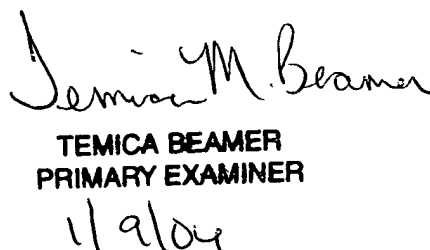 Temica M. Beamer
TEMICA BEAMER
PRIMARY EXAMINER
1/9/04